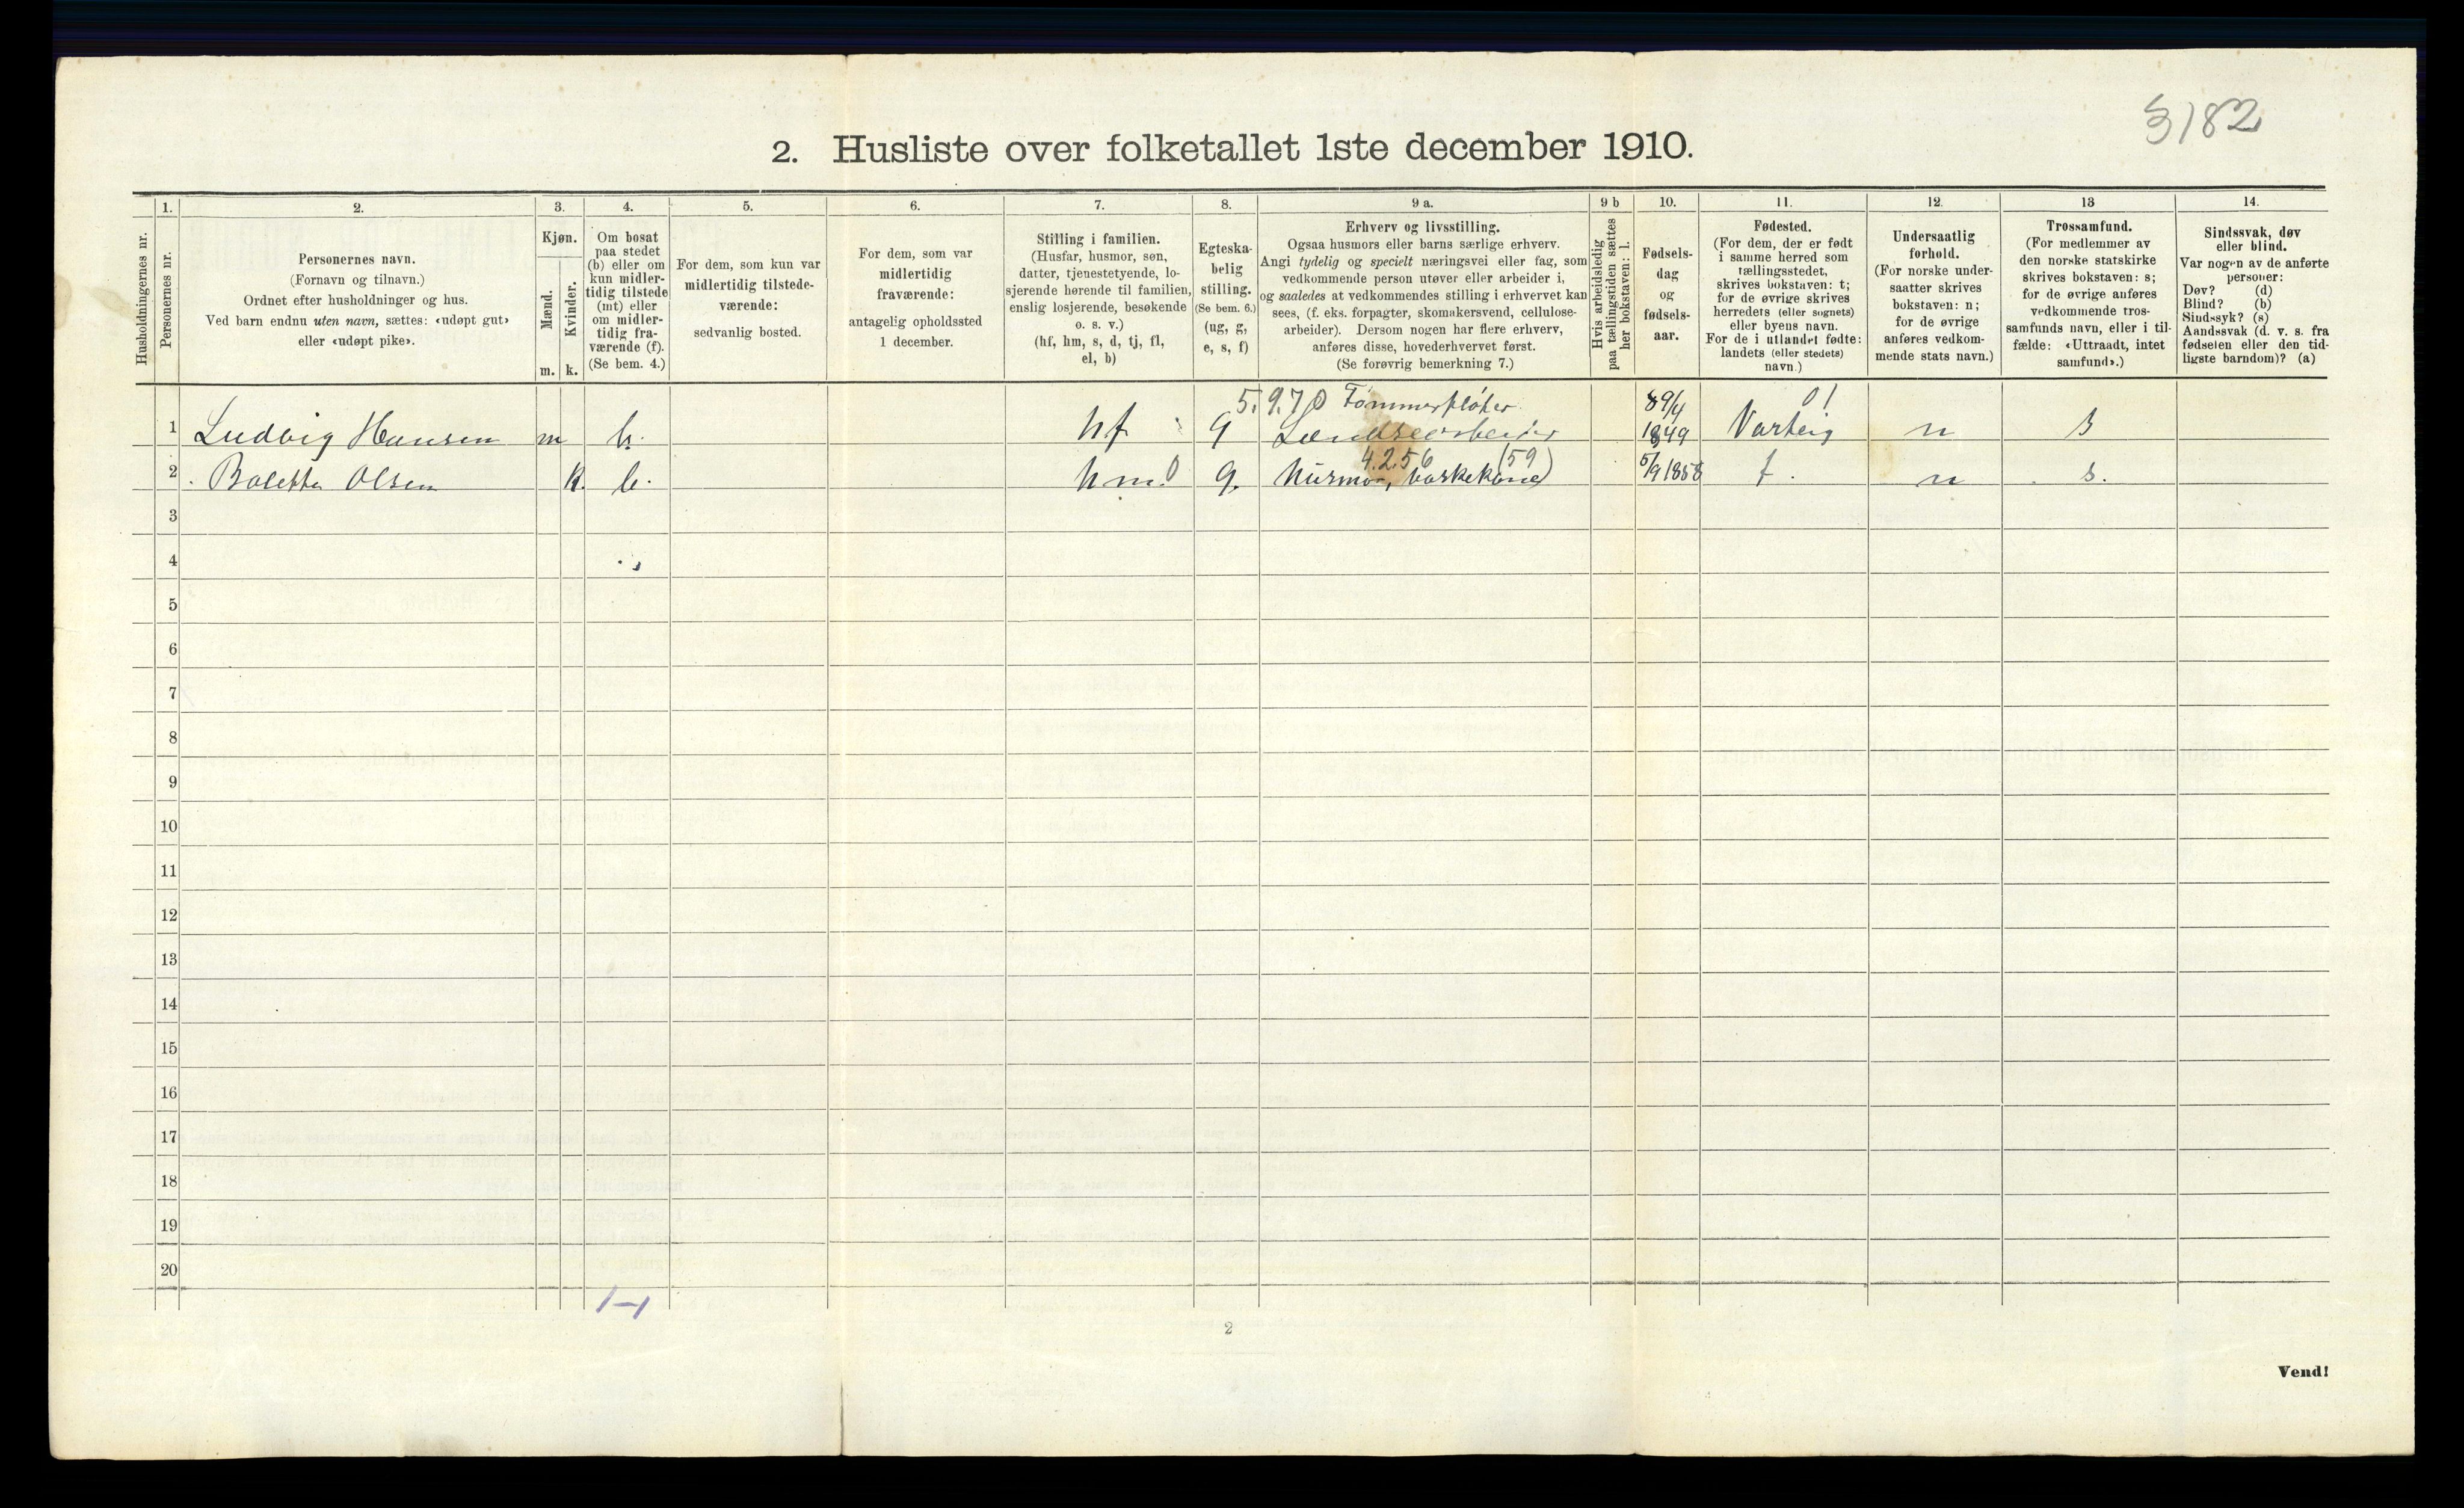 3182
2. Husliste over folketallet 1ste december 1910.
Husholdningernes nr.
1.
Personernes nr.
2.
Personernes navn.
(Fornavn og tilnavn.)
Ordnet efter husholdninger og hus.
Ved barn endnu uten navn, sættes: «udøpt gut»
eller «udøpt pike».
3.
Kjøn.
Mænd.
Kvinder.
m. k.
4.
Om bosat
paa stedet
(b) eller om
kun midler-
tidig tilstede
(mt) eller
om midler-
tidig fra-
værende (f).
(Se bem. 4.)
5.
For dem, som kun var
midlertidig tilstede-
værende:
sedvanlig bosted.
6.
For dem, som var
midlertidig
fraværende:
antagelig opholdssted
1 december.
7.
Stilling i familien.
(Husfar, husmor, søn,
datter, tjenestetyende, lo-
sjerende hørende til familien,
enslig losjerende, besøkende
o. s. v.)
(hf, hm, s, d, tj, fl,
el, b)
8.
Egteska-
belig
stilling.
(Se bem. 6.)
(ug, g,
e, s, f)
9 a.
Erhverv og livsstilling.
Ogsaa husmors eller barns særlige erhverv.
Angi tydelig og specielt næringsvei eller fag, som
vedkommende person utøver eller arbeider i,
og saaledes at vedkommendes stilling i erhvervet kan
sees, (f. eks. forpagter, skomakersvend, cellulose-
arbeider). Dersom nogen har flere erhverv,
anføres disse, hovederhvervet først.
(Se forøvrig bemerkning 7.)
9 b
Hvis arbeidsledig
paa tællingstiden sættes
her bokstaven: l.
10.
Fødsels-
dag
og
fødsels-
aar.
11.
Fødested.
(For dem, der er født
i samme herred som
tællingsstedet,
skrives bokstaven: t;
for de øvrige skrives
herredets (eller sognets)
eller byens navn.
For de i utlandet fødte:
landets (eller stedets)
navn.)
12.
Undersaatlig
forhold.
(For norske under-
saatter skrives
bokstaven: n;
for de øvrige
anføres vedkom-
mende stats navn.)
13
Trossamfund.
(For medlemmer av
den norske statskirke
skrives bokstaven: s;
for de øvrige anføres
vedkommende tros-
samfunds navn, eller i til-
fælde: «Uttraadt, intet
samfund».)
14.
Sindssvak, døv
eller blind.
Var nogen av de anførte
personer:
Døv? (d)
Blind? (b)
Sindssyk? (s)
Aandssvak (d. v. s. fra
fødselen eller den tid-
ligste barndom)? (a)
5.9.70 Tømmerfløter 01
1 Ludvig Hansen m b. hf g 1849 Varteig n s
4.2.56 (59)
2 Bolette Olsen k. b. hm. 0 g. Husmor, vaskekone 5/9 1858 t. n s.
3
4
5
6
7
8
9
10
11
12
13
14
15
16
17
18
19
20
1-1
2
Vend!